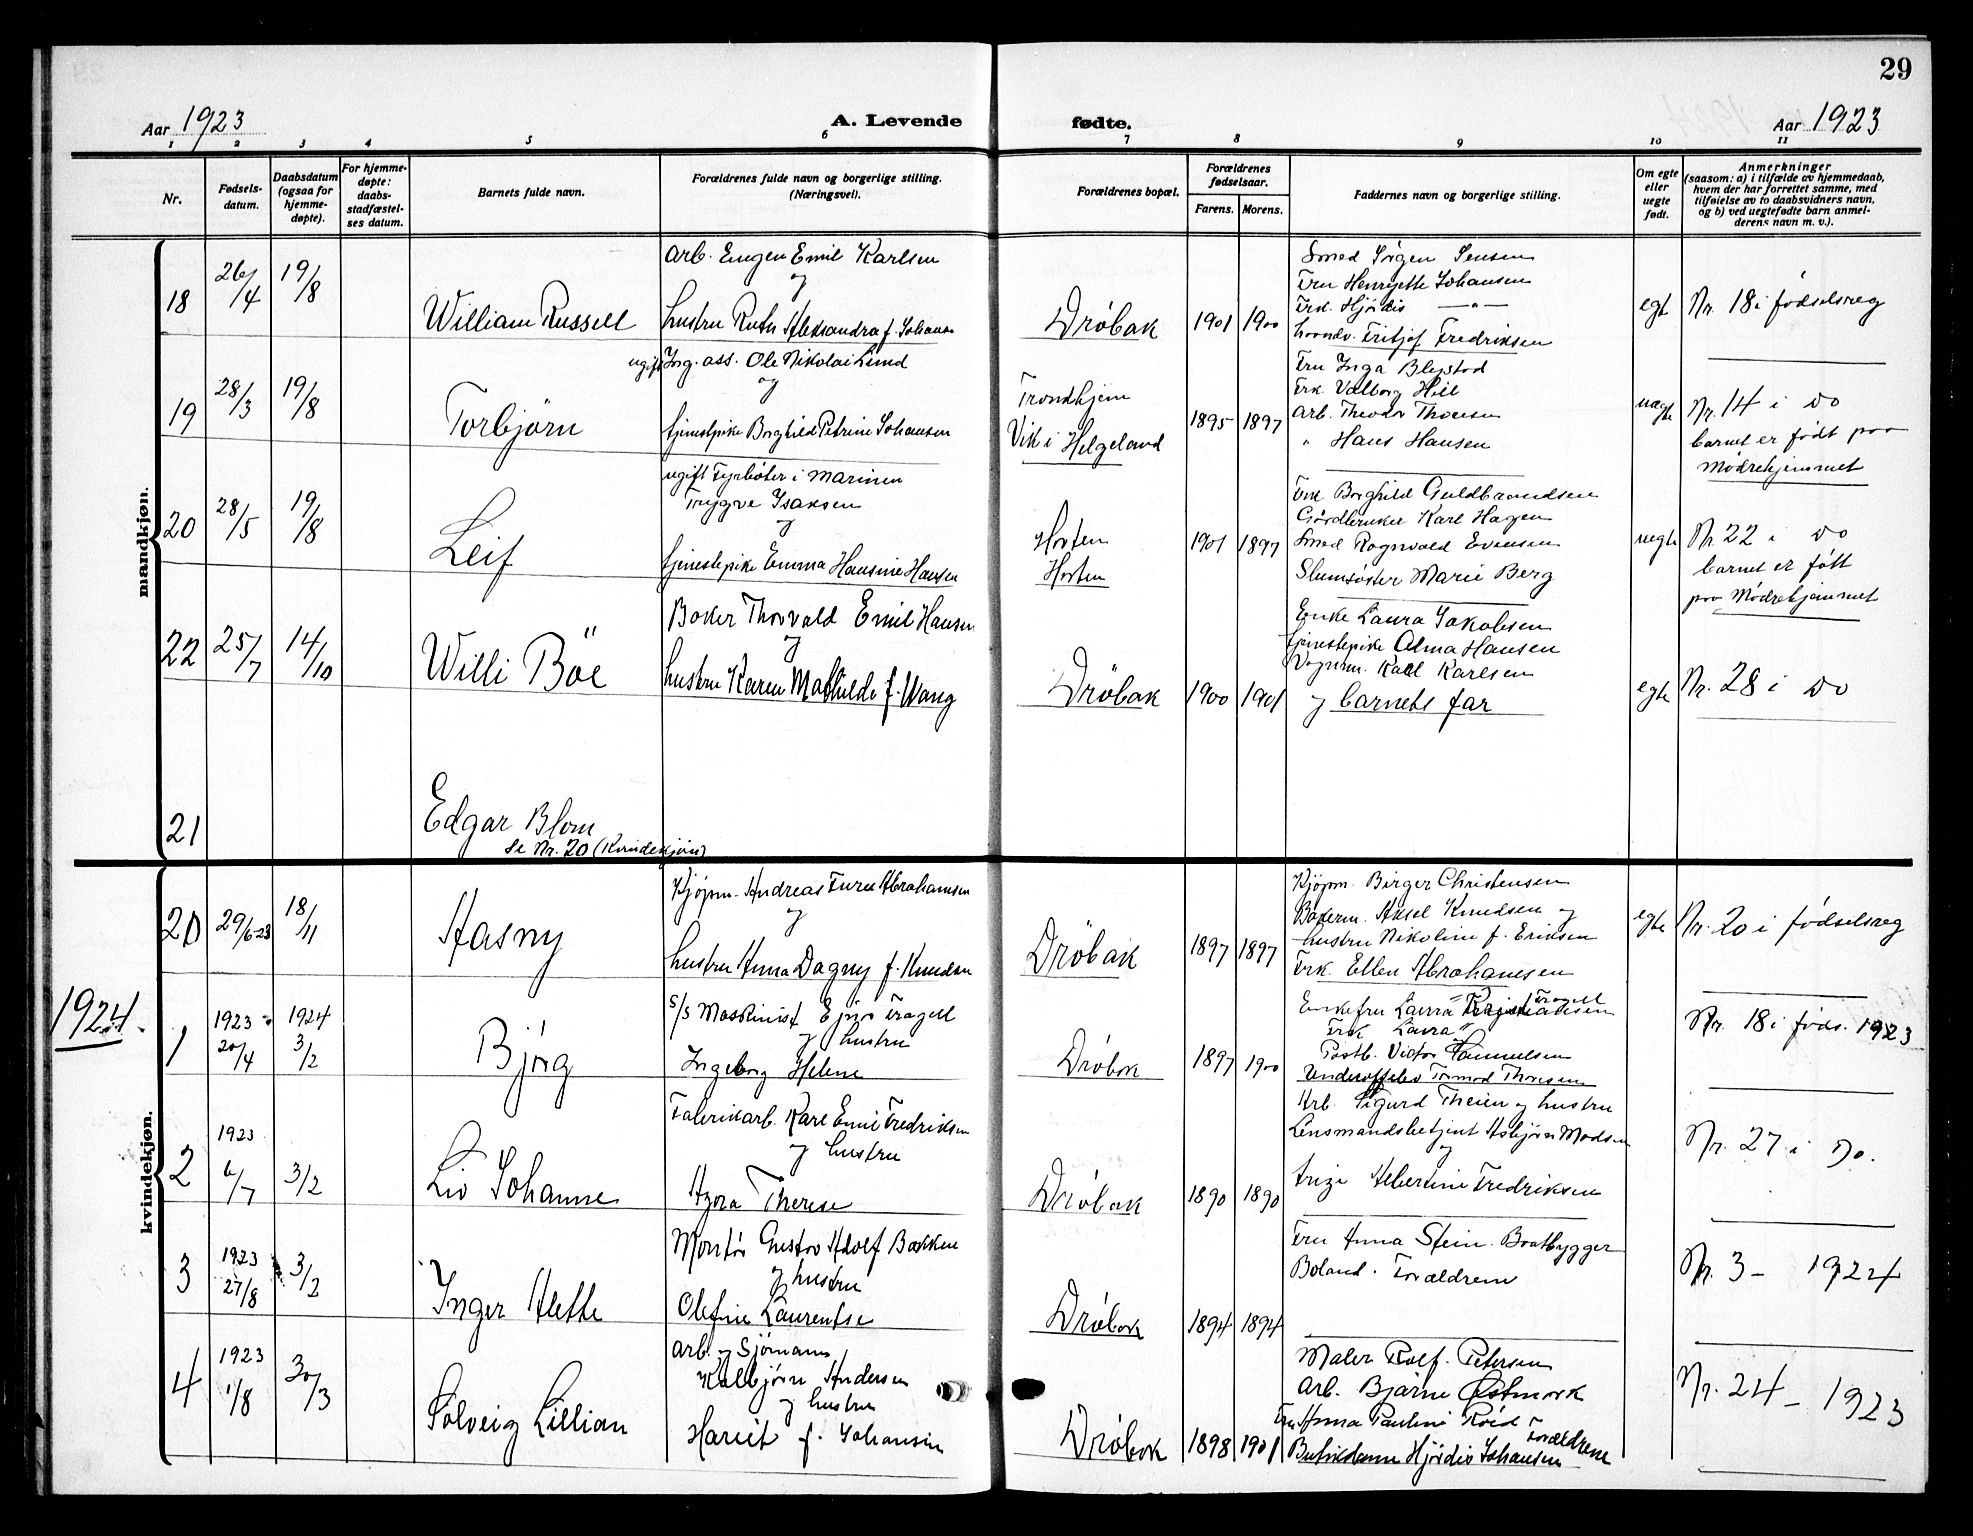 29
Aar 1923
A. Levende
fødte.
Aar 1923
1 2 3 4 5 6 7 8 9 10 11
Nr.
Fødsels-
datum.
Daabsdatum
(ogsaa for
hjemme-
døpte).
For hjemme-
døpte:
daabs-
stadfæstel-
ses datum.
Barnets fulde navn.
Forældrenes fulde navn og borgerlige stilling.
(Næringsvei).
Forældrenes bopæl.
Forældrenes
fødselsaar.
Farens.
Morens.
Faddernes navn og borgerlige stilling.
Om egte
eller
uegte
født.
Anmerkninger
(saasom: a) i tilfælde av hjemmedaab,
hvem der har forrettet samme, med
tilføielse av to daabsvidners navn,
og b) ved uegtefødte barn anmel-
derens navn m. v.).
mandkjøn.
18
26/4
19/8
William Russell
Arb. Eugen Emil Karlsen
og
hustru Ruth Aleksandra f. Johans
Drøbak
1901
1900
Smed Jørgen Jensen
Fru Henryette Johansen
Frk. Hjørdis — " —
Fritjof Fredriksen
egt
Nr. 18 i fødselsreg
19
28/3
19/8
Torbjørn
ugift Ing. ass. Ole Nikolai Lund
og
tjenestpike Borghild Petrine Johansen
Trondhjem
Vik i Helgeland
1895
1897
Fru Inga Blystad
Frk. Valborg Hill
Arb. Theodor Thoresen
" Hans Hansen
uegte
Nr. 14 i do
barnet er født paa
Mødrehjemmet
20
28/5
19/8
Leif
ugift Fyrbøter i Marinen
Trygve Isaksen
og
tjenestepike Emma Hansine Hansen
Horten
Horten
1901
1897
Frk Borghild Guldbrandsen
Gårdbruker Karl Hagen
Smed Ragnvald Evensen
Slumsøster Marie Berg
uegte
Nr 22 i do
barnet er født
paa Mødrehjemmet
22
25/7
14/10
Willi Böe
Baker Thorvald Emil Hansen
og
hustru Karen Mathilde f. Wang
Drøbak
1900
1901
Enke Laura Jakobsen
tjenestepike Alma Hansen
Vognm. Karl Karlsen
og barnets far
egte
Nr. 28 i do
21
Edgar Blom
se Nr. 20 (Kvindekjøn)
kvindekjøn.
20
29/6-23
18/11
Aasny
Kjøpm. Andreas Furu Abrahamsen
og
hustru Anna Dagny f. Knudsen
Drøbak
1897
1897
Kjøpm. Birger Christensen
Bakerm. Aksel Knudsen og
hustru Nikoline f. Eriksen
Frk. Ellen Abrahamsen
egte
Nr. 20 i fødselsreg
1924.
1
1923
20/4
1924
3/2
Bjørg
S/S Maskinist Ejnar Fragell
og hustru
Ingeborg Helene
Drøbak
1897
1900
Enkefru Laura Kristiansen
Frk Laura Fragell
Postb. Victor Samuelsen
Underoffelev Tormod Thoresen
Nr. 18 i føds. 1923
2
1923
6/7
3/2
Liv Johanne
Fabrikarb. Karl Emil Fredriksen
og hustru
Agna Therese
Drøbak
1890
1890
Arb. Sigurd Theien og hustru
Lensmandsbetjent Asbjørn Madsen
og
Albertine Fredriksen
Nr. 27 i Do.
3
1923
27/8
3/2
Inger Alette
Montør Gustav Adolf Bakken
og hustru
Olefine Laurentse
Drøbak
1894
1894
Fru Anna Stein. Baatbygger
Boland. Forældrene
Nr. 3 – 1924
4
1923
1/8
30/3
Solveig Lillian
Arb. og Sjømann
Kolbjørn Andersen
og hustru
Hariet f. Johansen
Drøbak
1898
1901
Maler Rolf. Petersen
Arb. Bjarne Østmork
Fru Anna Pauline Røed
Forældrene
Butikdame Hjørdis Johansen
Nr. 24 – 1923